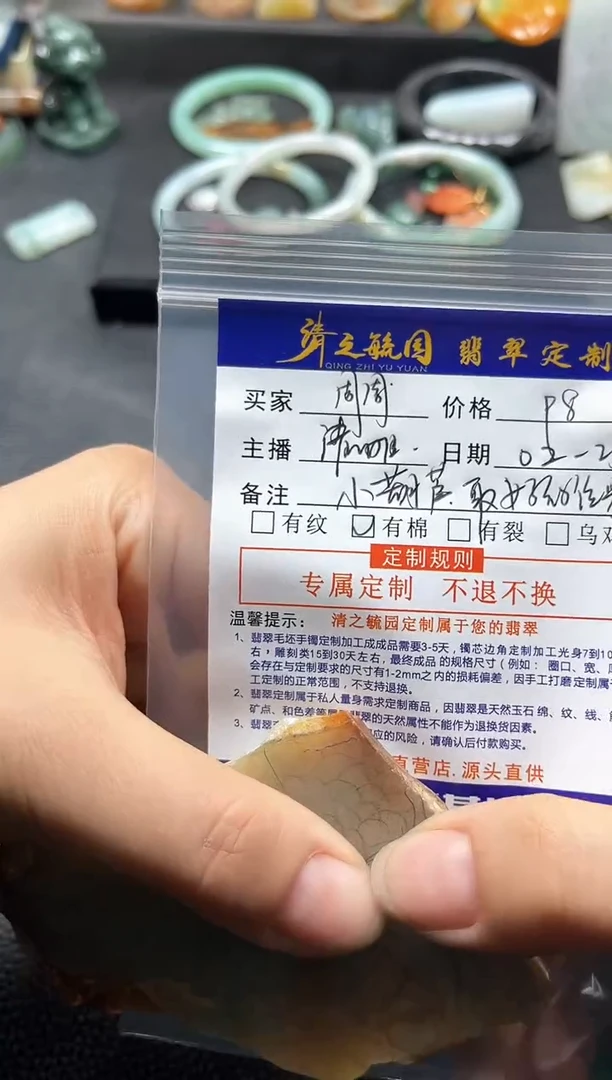 清之毓园 翡翠定制
QING ZHI YU YUAN
买家 周周 价格 98
主播 日期 02-2
备注 小葫芦.取好的位
有纹 有棉 有裂 乌鸡
定制规则
专属定制 不退不换
温馨提示: 清之毓园定制属于您的翡翠
1、翡翠毛坯手镯定制加工成成品需要3-5天,镯芯边角定制加工光身7到10
右,雕刻类15到30天左右,最终成品的规格尺寸(例如: 圈口、宽、
会存在与定制要求的尺寸有1-2mm之内的损耗偏差,因手工打磨定制属于
工定制的正常范围,不支持退换。
2、翡翠定制属于私人量身需求定制商品,因翡翠是天然玉石 绵、纹、线、
矿点、和色差等 翡翠的天然属性不能作为退换货因素。
3、翡翠 应的风险,请确认后付款购买。
直营店.源头直供